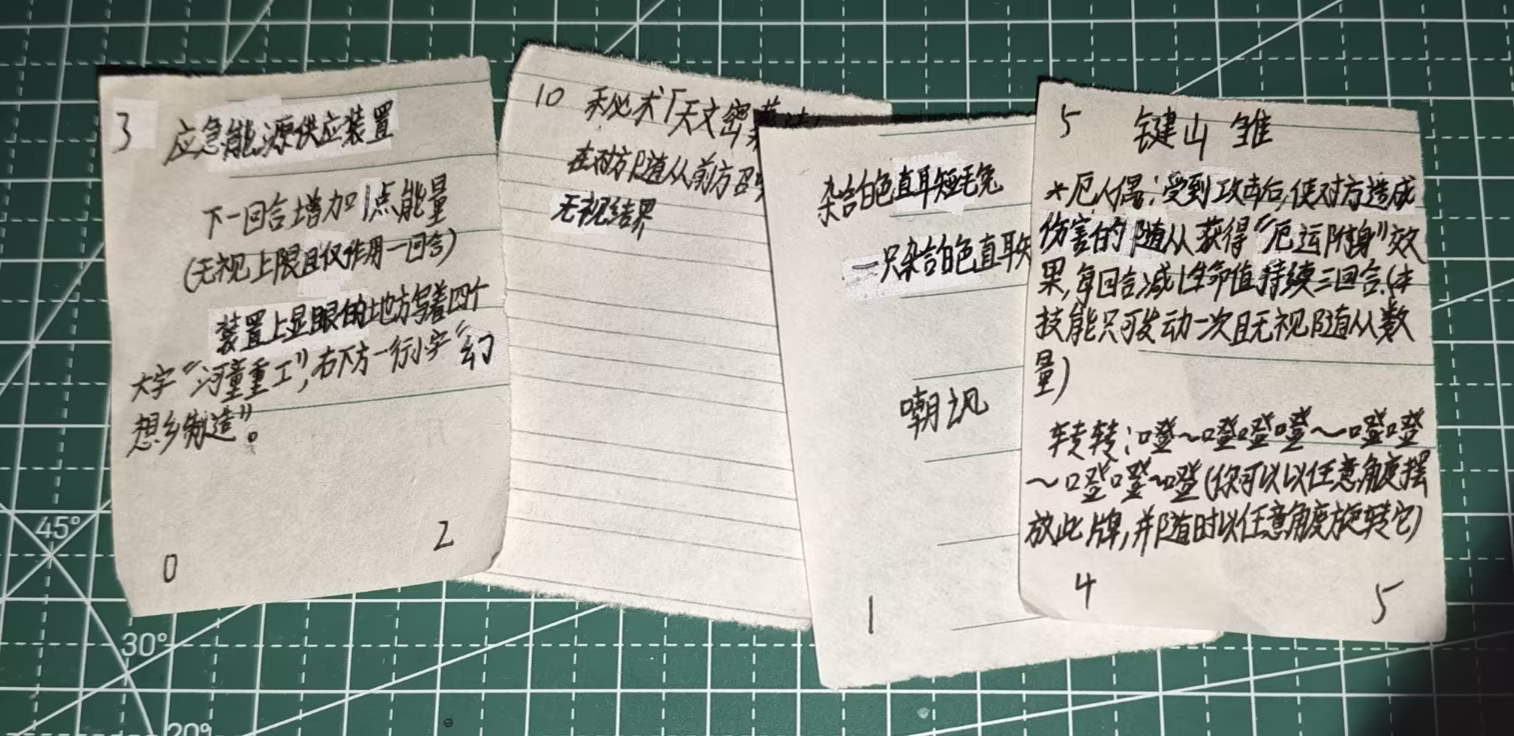 3 应急能源供应装置
下一回合增加1点能量
(无视上限且仅作用一回合)
装置上显眼的地方写着四个
大字“河童重工”,右下方一行小字“幻
想乡制造”。
0 2
10 秘术「天文密葬法
在对方随从前方召
无视结界
杂合白色直耳短毛兔
一只杂合白色直耳短
嘲讽
1
5 键山 雏
*厄人偶:受到攻击后,使对方造成
伤害的随从获得“厄运附身”效
果,每回合减1生命值,持续三回合.(本
技能只可发动一次且无视随从数
量)
转转:噔~噔噔噔~噔噔
~噔噔~噔(你可以以任意角度摆
放此牌,并随时以任意角度旋转它)
4 5